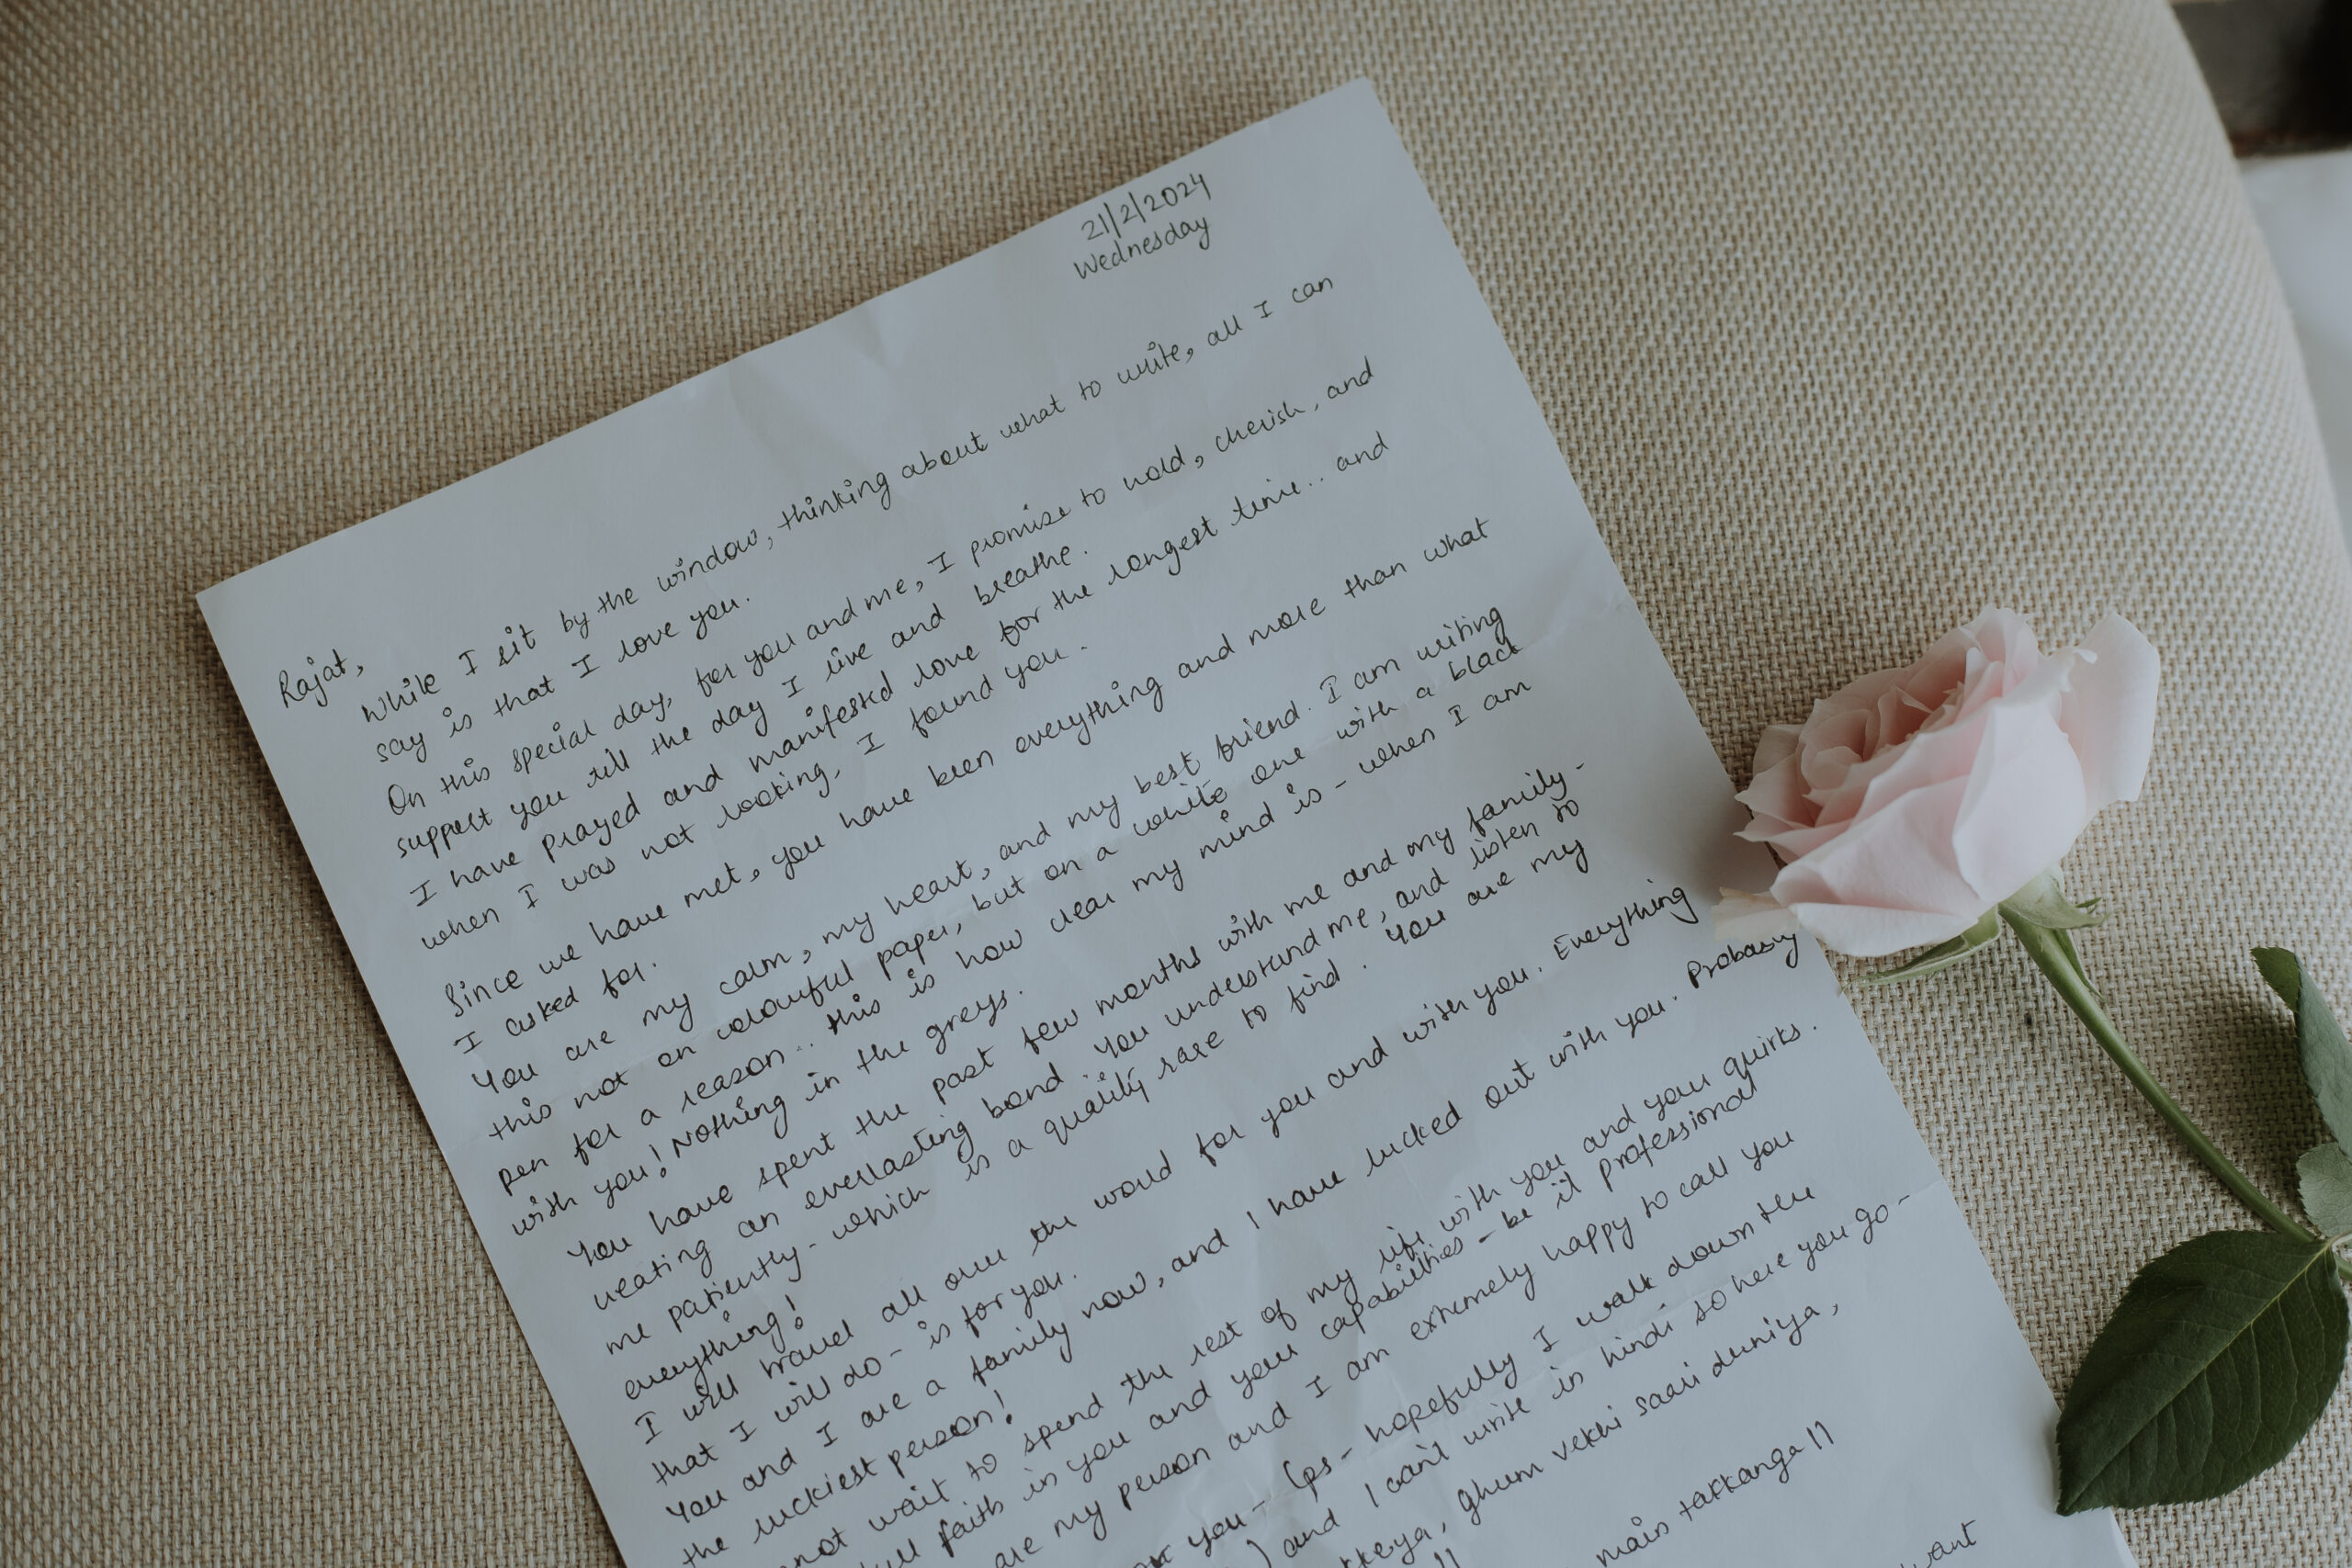 21/2/2024
Wednesday
Rajat,
While I sit by the window, thinking about what to write, all I can
say is that I love you.
On this special day, for you and me, I promise to hold, cherish, and
support you till the day I live and breathe.
I have prayed and manifested love for the longest time.. and
when I was not looking, I found you.
Since we have met, you have been everything and more than what
I asked for.
You are my calm, my heart, and my best friend. I am writing
this not on colourful paper, but on a white one with a black
pen for a reason.. this is how clear my mind is - when I am
with you! Nothing in the greys.
You have spent the past few months with me and my family -
creating an everlasting bond. You understand me, and listen to
me patiently - which is a quality rare to find. You are my
everything!
I will travel all over the world for you and with you. Everything
that I will do - is for you.
You and I are a family now, and I have lucked out with you. Probably
the luckiest person!
not wait to spend the rest of my life with you and your quirks.
full faith in you and your capabilities - be it professional
are my person and I am extremely happy to call you
you - (ps - hopefully I walk down the
) and I can't write in hindi so here you go -
, ghum vekhi saari duniya,
main takkanga ||
want